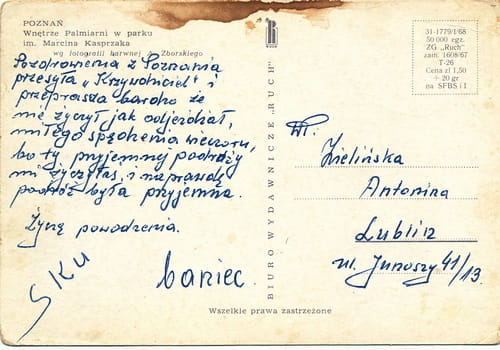 POZNAŃ
Wnętrze Palmiarni w parku
im. Marcina Kasprzaka
wg fotografii barwnej A. Zborskiego
Pozdrowienia z Poznania
przesyła „Krzywoniciel" i
przeprasza bardzo że
nie życzył jak odjeżdżał,
miłego spędzenia wieczoru,
bo ty przyjemnej podróży
mi życzyłaś, i naprawdę
podróż była przyjemna.
Życzę powodzenia.
baniec.
BIURO WYDAWNICZE „RUCH"
31-1779/I/68
50 000 egz.
ZG „Ruch"
zam. 1608/67
T-26
Cena zł 1,50
+ 20 gr
na SFBS i I
Wł.
Zielińska
Antonina
Lublin
ul. Junoszy 41/13.
Wszelkie prawa zastrzeżone